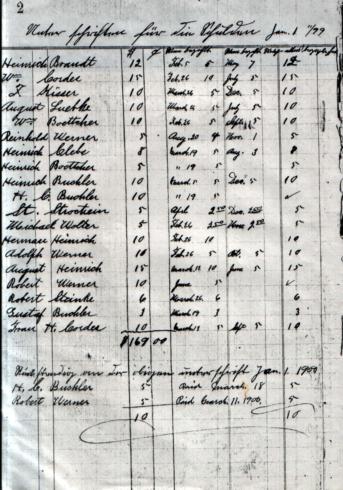 2
Unterschriften für die Schulden Jan. 1 1/99
$ ¢
Heinrich Brandt 12 Feb. 5 6 7 12
Wm. Corder 15 Feb. 26 10 July 5 15
F. Kieser 10 5 Dec. 5 10
August Luebke 10 March 5 July 5 10
Wm. Boettcher 10 Feb. 26 5 Sept. 5 10
Reinhold Werner 5 Aug. 20 4 Nov. 1 5
Heinrich Clebe 8 March 19 5 Aug. 3 8
Heinrich Boettcher 5 " 19 5 5
Heinrich Buchler 10 5 Dec. 5 10
H. C. Buchler 10 " 19 5 ✓
St. Strothein 5 2 50 Dec. 2 50 5
Michael Wolter 5 Feb. 26 2 50 2 50 5
Herman Heinrich 10 Feb. 26 10 10
Adolph Werner 10 Feb. 26 5 Oct. 5 10
August Heinrich 15 March 11 10 June 5 15
Robert Werner 10 June 5 ✓
Robert Steinke 6 March 26 6 6
Gustaf Buchler 3 March 19 3 3
Frau H. Corder 10 March 5 5 10
$169 00
von der obigen Unterschrift Jan. 1 1900
H. C. Buchler 5 Paid March 18 5
Robert Werner 5 Paid March 11. 1900. 5
10 10